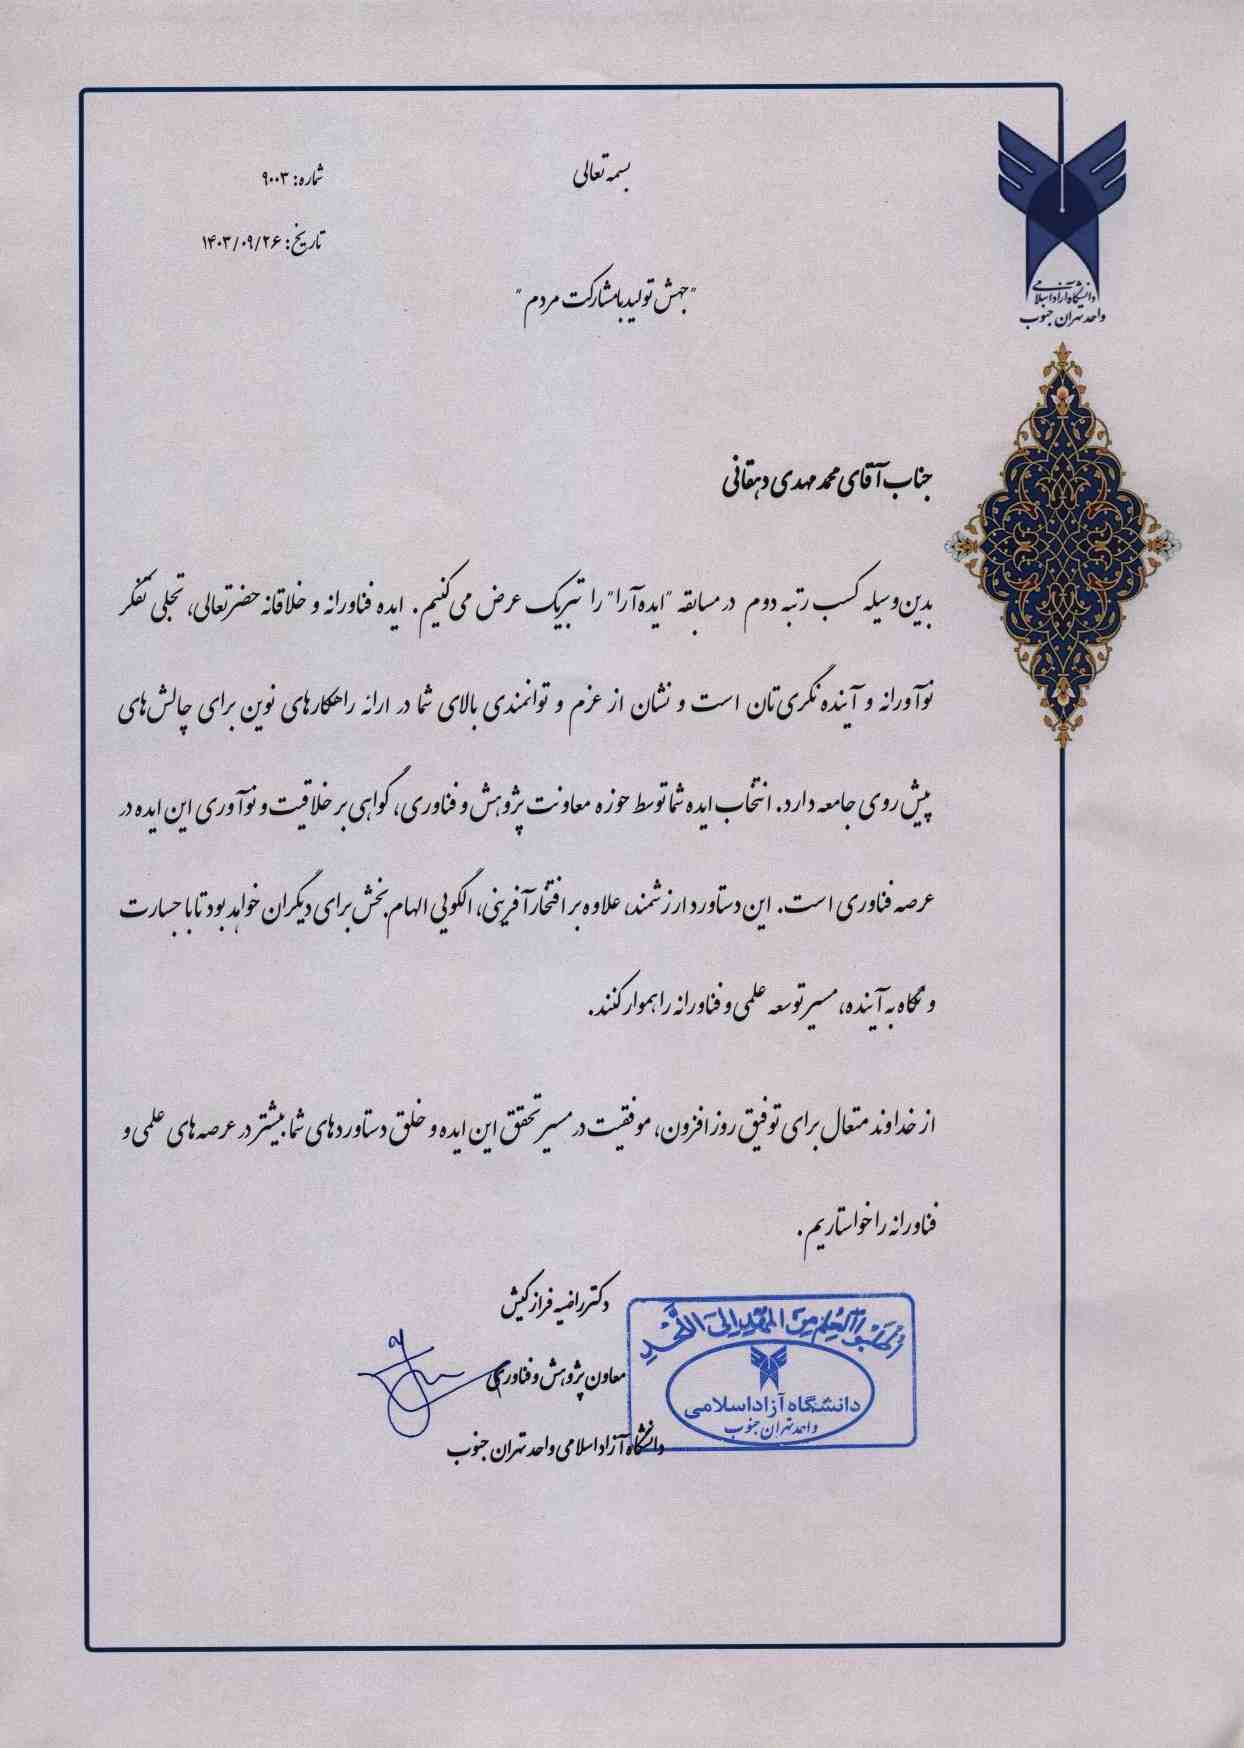 بسمه تعالی
شماره: ۹۰۰۳
تاریخ: ۱۴۰۳/۰۹/۲۶
"جهش تولید با مشارکت مردم"
دانشگاه آزاد اسلامی
واحد تهران جنوب
جناب آقای محمد مهدی دهقانی
بدین وسیله کسب رتبه دوم در مسابقه "ایده آرا" را تبریک عرض می کنیم. ایده فناورانه و خلاقانه حضرتعالی، تجلی تفکر
نوآورانه و آینده نگری تان است و نشان از عزم و توانمندی بالای شما در ارائه راهکارهای نوین برای چالش های
پیش روی جامعه دارد. انتخاب ایده شما توسط حوزه معاونت پژوهش و فناوری، گواهی بر خلاقیت و نوآوری این ایده در
عرصه فناوری است. این دستاورد ارزشمند، علاوه بر افتخارآفرینی، الگویی الهام بخش برای دیگران خواهد بود تا با جسارت
و نگاه به آینده، مسیر توسعه علمی و فناورانه را هموار کنند.
از خداوند متعال برای توفیق روز افزون، موفقیت در مسیر تحقق این ایده و خلق دستاوردهای شما بیشتر در عرصه های علمی و
فناورانه را خواستاریم.
دکتر راضیه فرازکیش
معاون پژوهش و فناوری
دانشگاه آزاد اسلامی واحد تهران جنوب
اُطلبُوا العِلمَ مِنَ المَهدِ اِلَی اللَّحدِ
دانشگاه آزاد اسلامی
واحد تهران جنوب